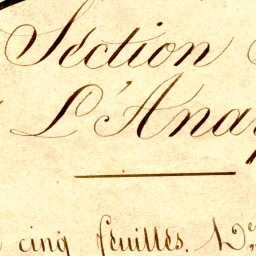 Section
L'Ana
cinq feuilles. N.